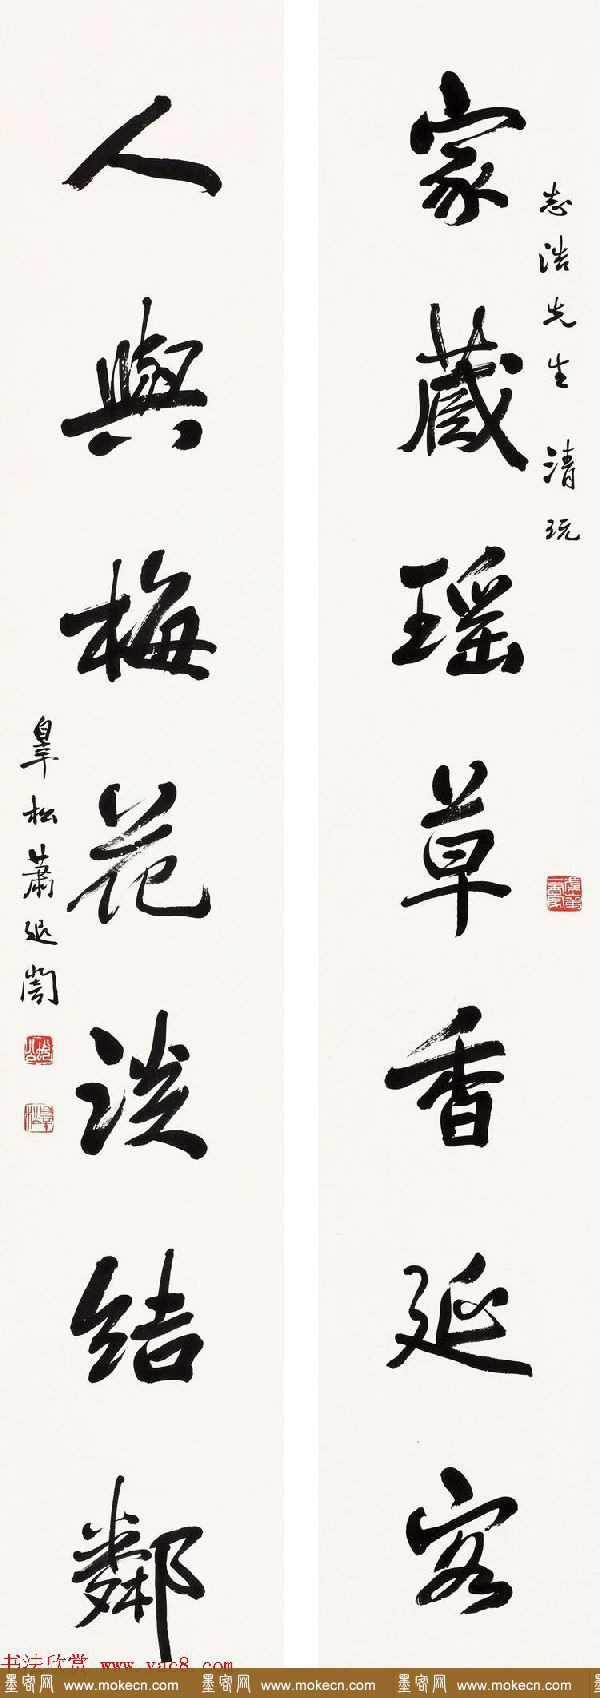 志浩先生 清玩
家藏瑶草香延客
人與梅花淡結鄰
皋松蕭退闇
书法欣赏 www.yac8.com
墨客网 www.mokecn.com 墨客网 www.mokecn.com 墨客网 www.mokecn.com